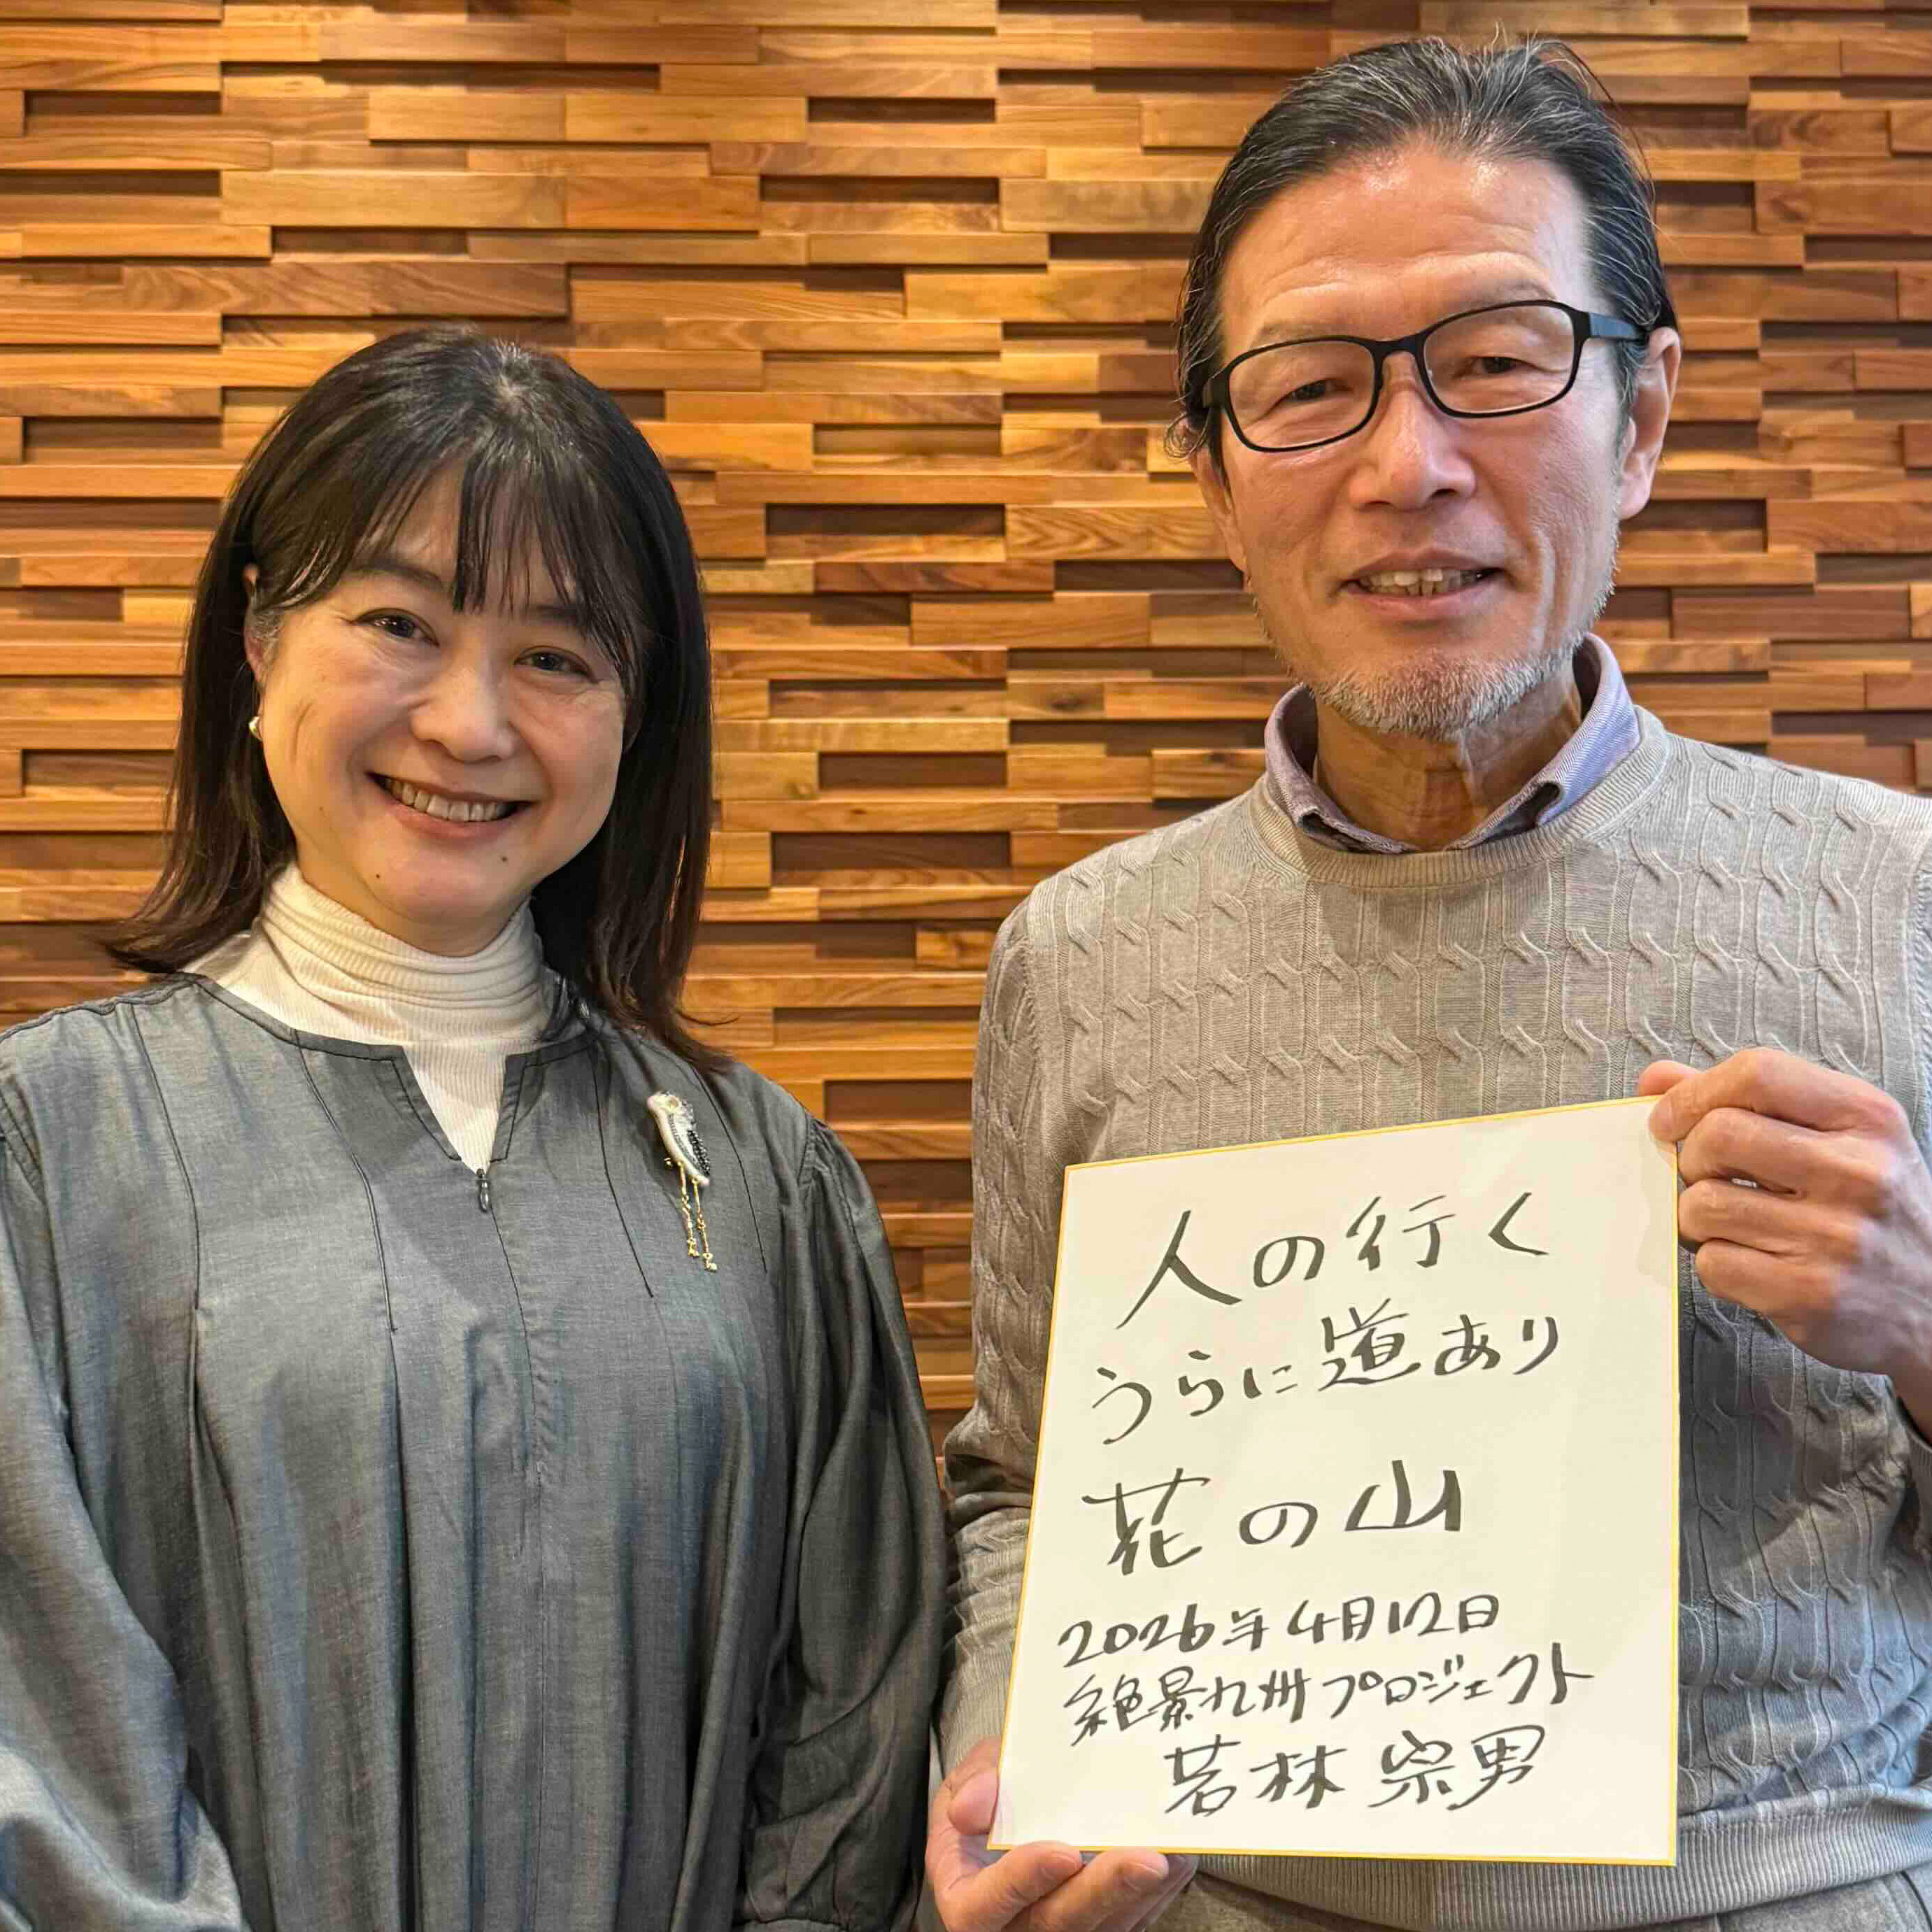 人の行く
うらに道あり
花の山
2026年4月12日
絶景九州プロジェクト
若林宗男